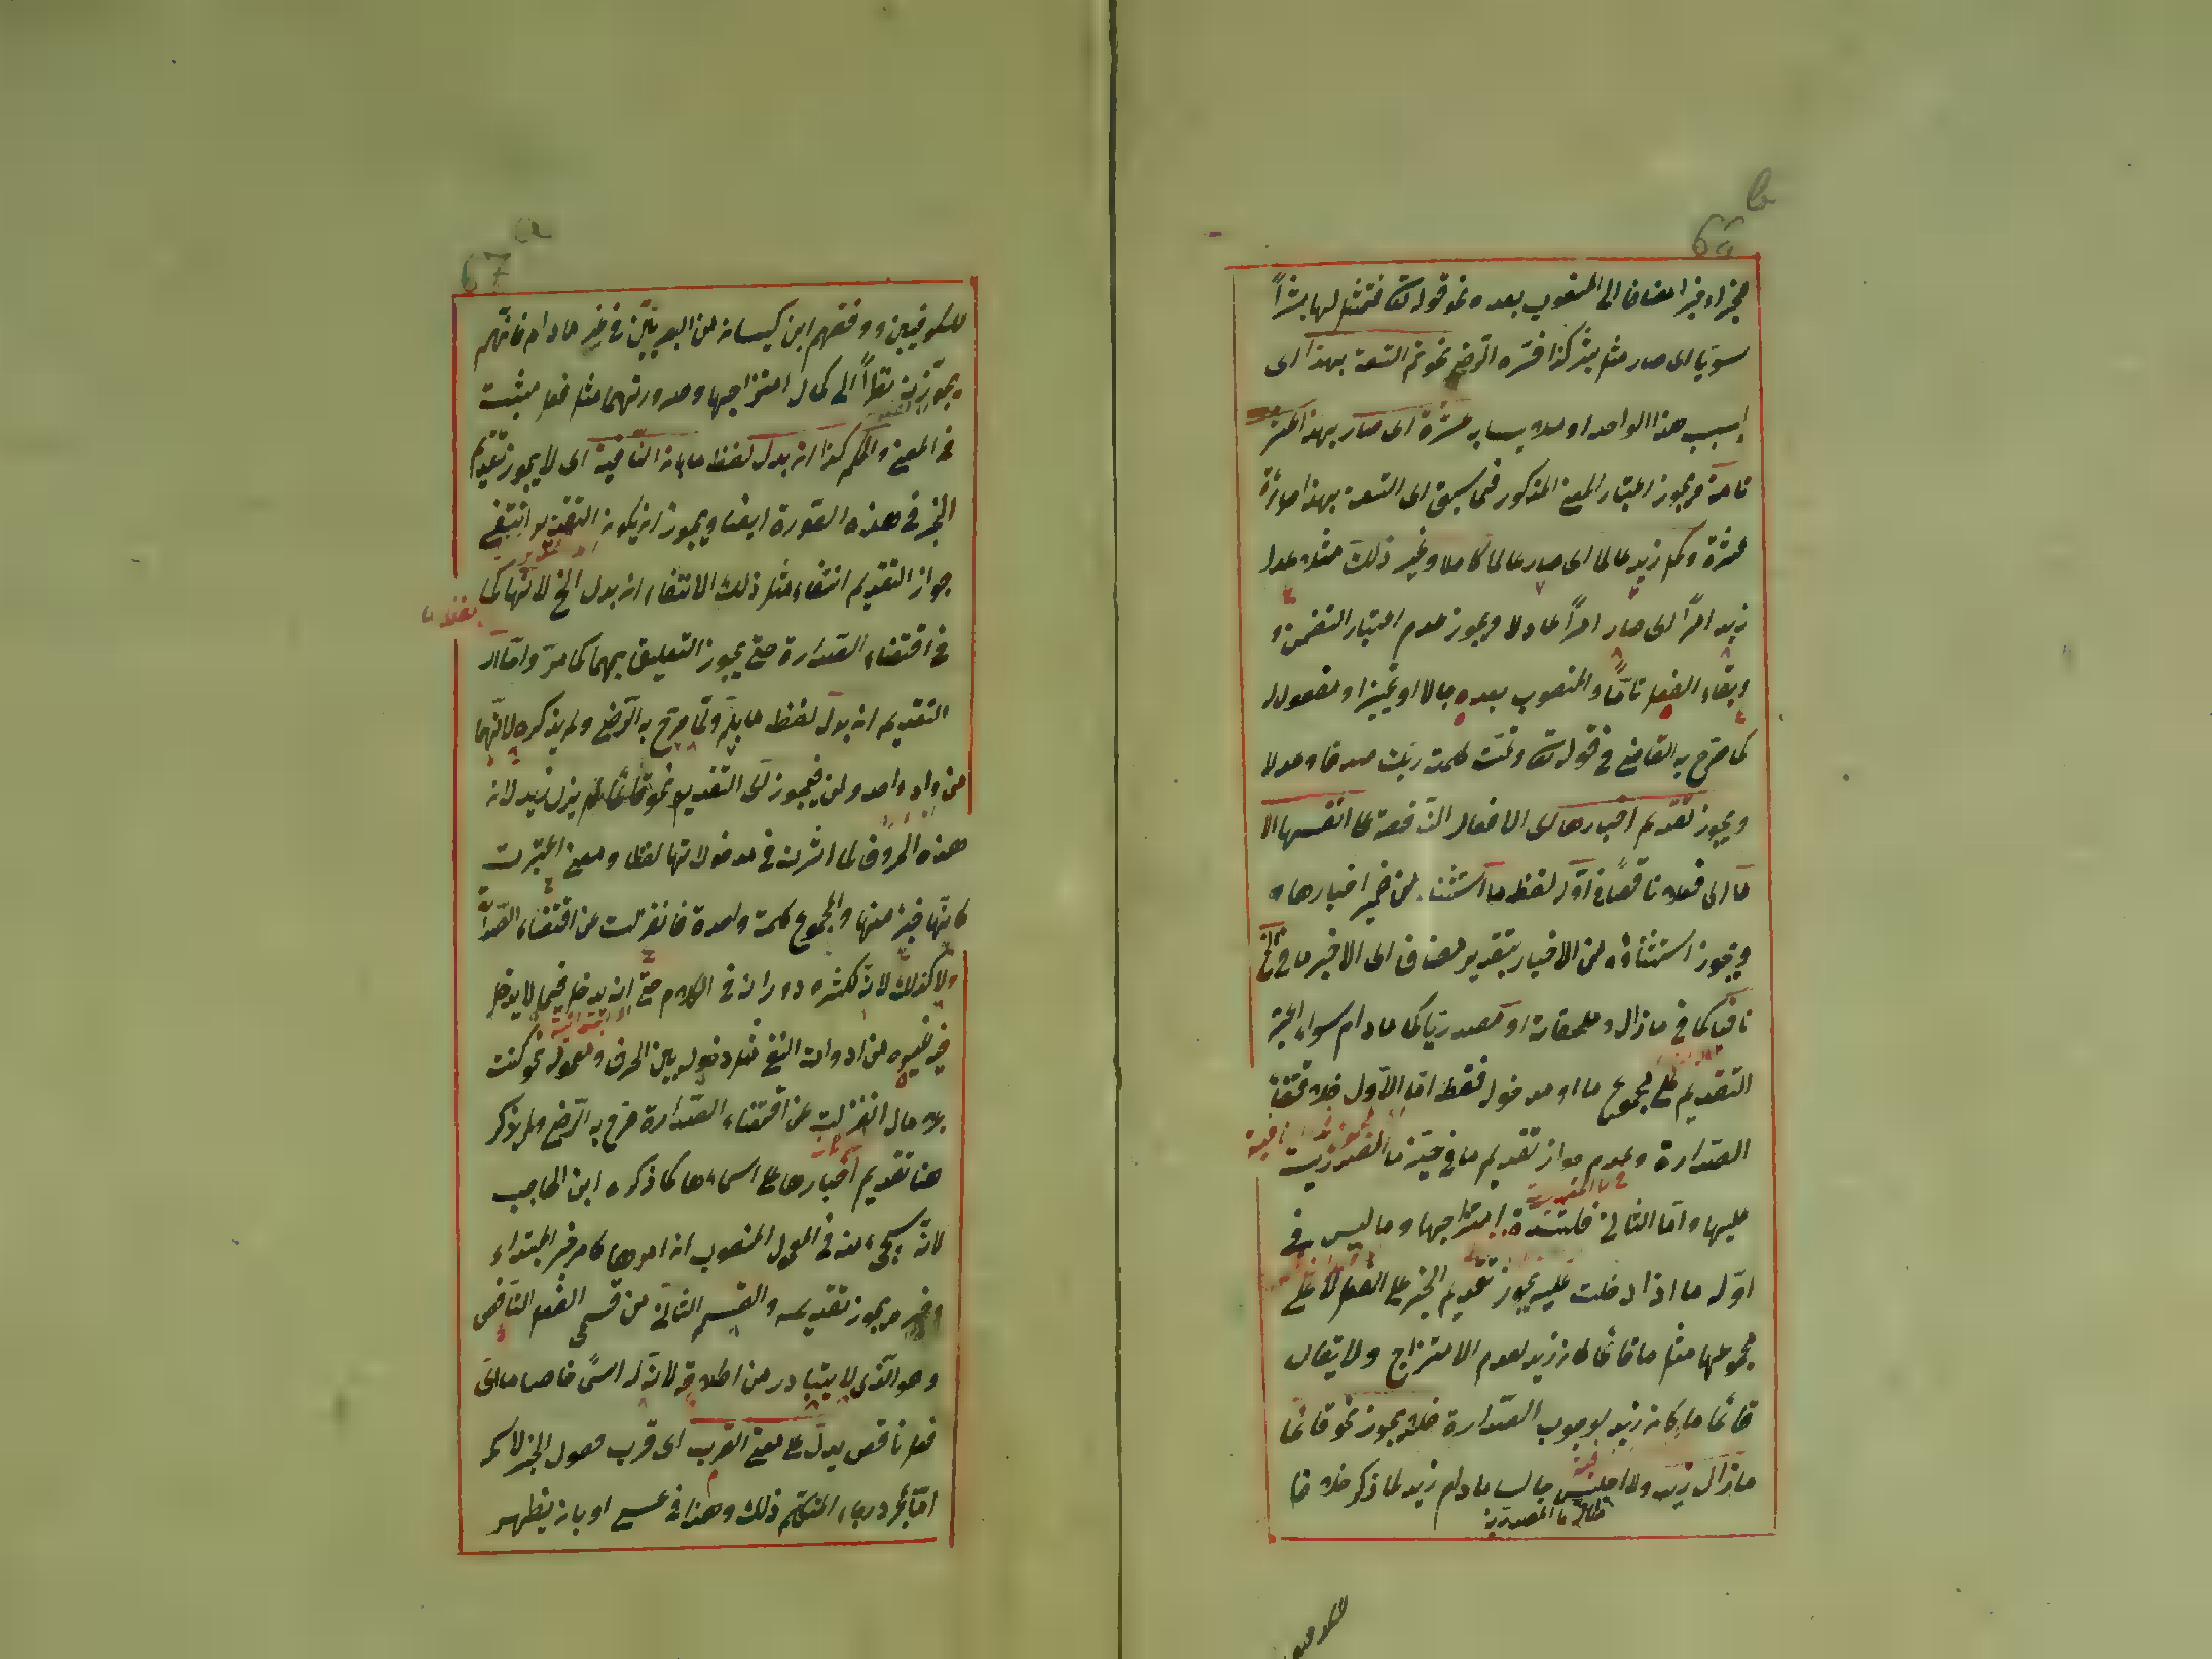 سويا اى صار مثل بشر كذا فسره الرضى نحو تم التسعة بهذا اى
بسبب هذا الواحد او عشرة اى صار بهذا عشرة
تامة ويجوز اعتبار المعنى المذكور فيما سبق اى التسعة بهذا صائرة
عشرة وكمل زيد عالما اى صار عالما كاملا وغير ذلك مثل عدل
زيد امرأ اى صار امرأ عادلا ويجوز عدم اعتبار التضمن
وبقاء الفعل تاما والمنصوب بعده حالا او تمييزا او مفعولا له
كما صرح به القاضى فى قوله تعالى وتمت كلمت ربك صدقا وعدلا
ويجوز تقديم اخبارها اى الافعال الناقصة على انفسها الا
ما اى فعلا ناقصا فى اوله لفظ ما استثناء من ضمير اخبارها
ويجوز استثناؤه من الاخبار بتقدير مضاف اى الا خبر ما فى الخ
نافيا كما فى مازال وملحقاته او مصدريا كما مادام سواء اعتبر
التقديم على مجموع ما او مدخوله فقط اما الاول فلاقتضاء
الصدارة وعدم جواز تقديم ما فى حيز ما المصدرية
عليها واما الثانى فلشدة امتزاجها وما ليس فى
اوله ما اذا دخلت عليه يجوز تقديم الخبر على الفعل لا على
مجموعها مثل ما قائما كان زيد لعدم الامتزاج ولا يقال
قائما ما كان زيد لوجوب الصدارة فلا يجوز نحو قائما
مازال زيد ولا اجلس جالسا مادام زيد لما ذكر خلافا
مثال ما المصدرية
للكوفيين
66 b
67 a
للكوفيين ووفقهم ابن كيسان من البصريين فى غير مادام فانهم
يجوزونه نظرا الى كمال امتزاجها وصيرورتهما مثل فعل مثبت
فى المعنى والحكم كذا ان بدل لفظ ما بان النافية اى لا يجوز تقديم
الخبر فى هذه الصورة ايضا ويجوز ان يكون التقدير انتفى
جواز التقديم انتفاء مثل ذلك الانتفاء ان بدل الخ لانها كما
فى اقتضاء الصدارة حتى يجوز التعليق بهما كما مر واما
التقديم ان بدل لفظ ما بلم ولما صرح به الرضى ولم يذكره لانهما
من واد واحد ولن فيجوز اى التقديم نحو قائما لم يزل زيد لان
هذه الحروف لما اثرت فى مدخولاتها لفظا ومعنى اعتبرت
كانها جزء منها والمجموع كلمة واحدة فانعزلت عن اقتضاء الصدارة
ولا كذلك لانه لكثرة دورانه فى الكلام حتى انه يدخل فيما لا يدخل
فيه غيره من ادوات النفى مثل دخوله بين الحرف ومعموله نحو كنت
بلا مال انعزلت عن اقتضاء الصدارة صرح به الرضى ولم يذكر
هنا تقديم اخبارها على اسمائها كما ذكره ابن الحاجب
لانه سيجىء منه فى المعمول المنصوب ان امرها كامر خبر المبتداء
وخبره يجوز تقديمه والقسم الثانى من قسمى الفعل الناقص
وهو الذى لا يتبادر من اطلاقه لان له اسما خاصا ما اى
فعل ناقص يدل على معنى القرب اى قرب حصول الخبر لاسمه
اما بمجرد رجاء المتكلم ذلك وهذا فى عسى او بان يظهر